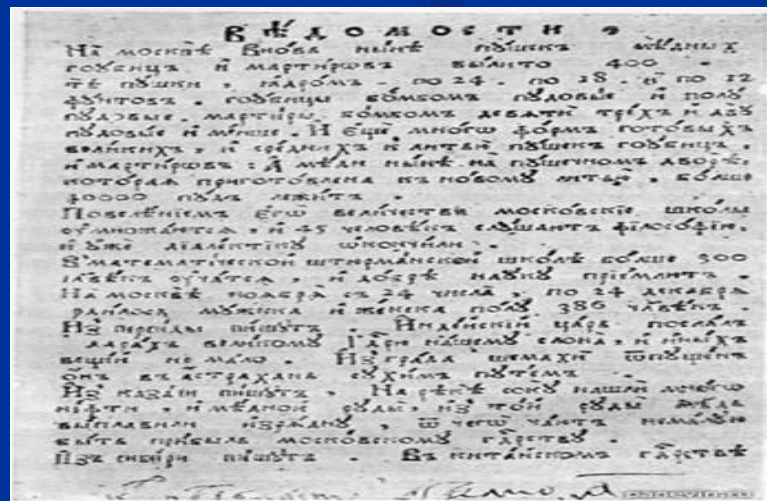 ВѢДОМОСТИ
На москвѣ вновь нынѣ пушекъ мѣдныхъ
гоубицъ и мартировъ вылито 400
тѣ пушки, ядромъ по 24. по 18. и по 12
фунтовъ. гоубицы бомбомъ пудовые и полу
пудовые. мартиры бомбомъ девяти трехъ и дву
пудовые и менше. И еще много формъ готовыхъ
великихъ, и среднихъ к литью пушекъ гоубицъ
и мартировъ: А мѣди нынѣ на пушечномъ дворѣ,
которая приготовлена къ новому литью, болше
40000 пудъ лежитъ.
Повелѣниемъ его величества московскіе школы
умножаются, и 45 человѣкъ слушаютъ філософію,
и уже діалектіку окончили.
В математіческой штюрманской школѣ болше 300
члвѣкъ учатся, и добрѣ науку пріемлютъ.
На москвѣ ноября съ 24 числа, по 24 декабря
родилося мужска и женска полу 386 члвѣкъ.
Изъ персиды пишутъ. Индѣйскій царь послалъ
в дарахъ великому Гдрю нашему слона, и иныхъ
вещей не мало. Изъ града шемахи ѿпущенъ
онъ въ астрахань сухимъ путемъ
Изъ казани пишутъ. На рѣкѣ соку нашли много
нѣфти, и мѣдной руды, изъ той руды мѣдь
выплавили изрядну, ѿ чего чаютъ немалую
быть прибыль московскому гдрству.
Изъ сибири пишутъ. Въ китайскомъ гдрствѣ